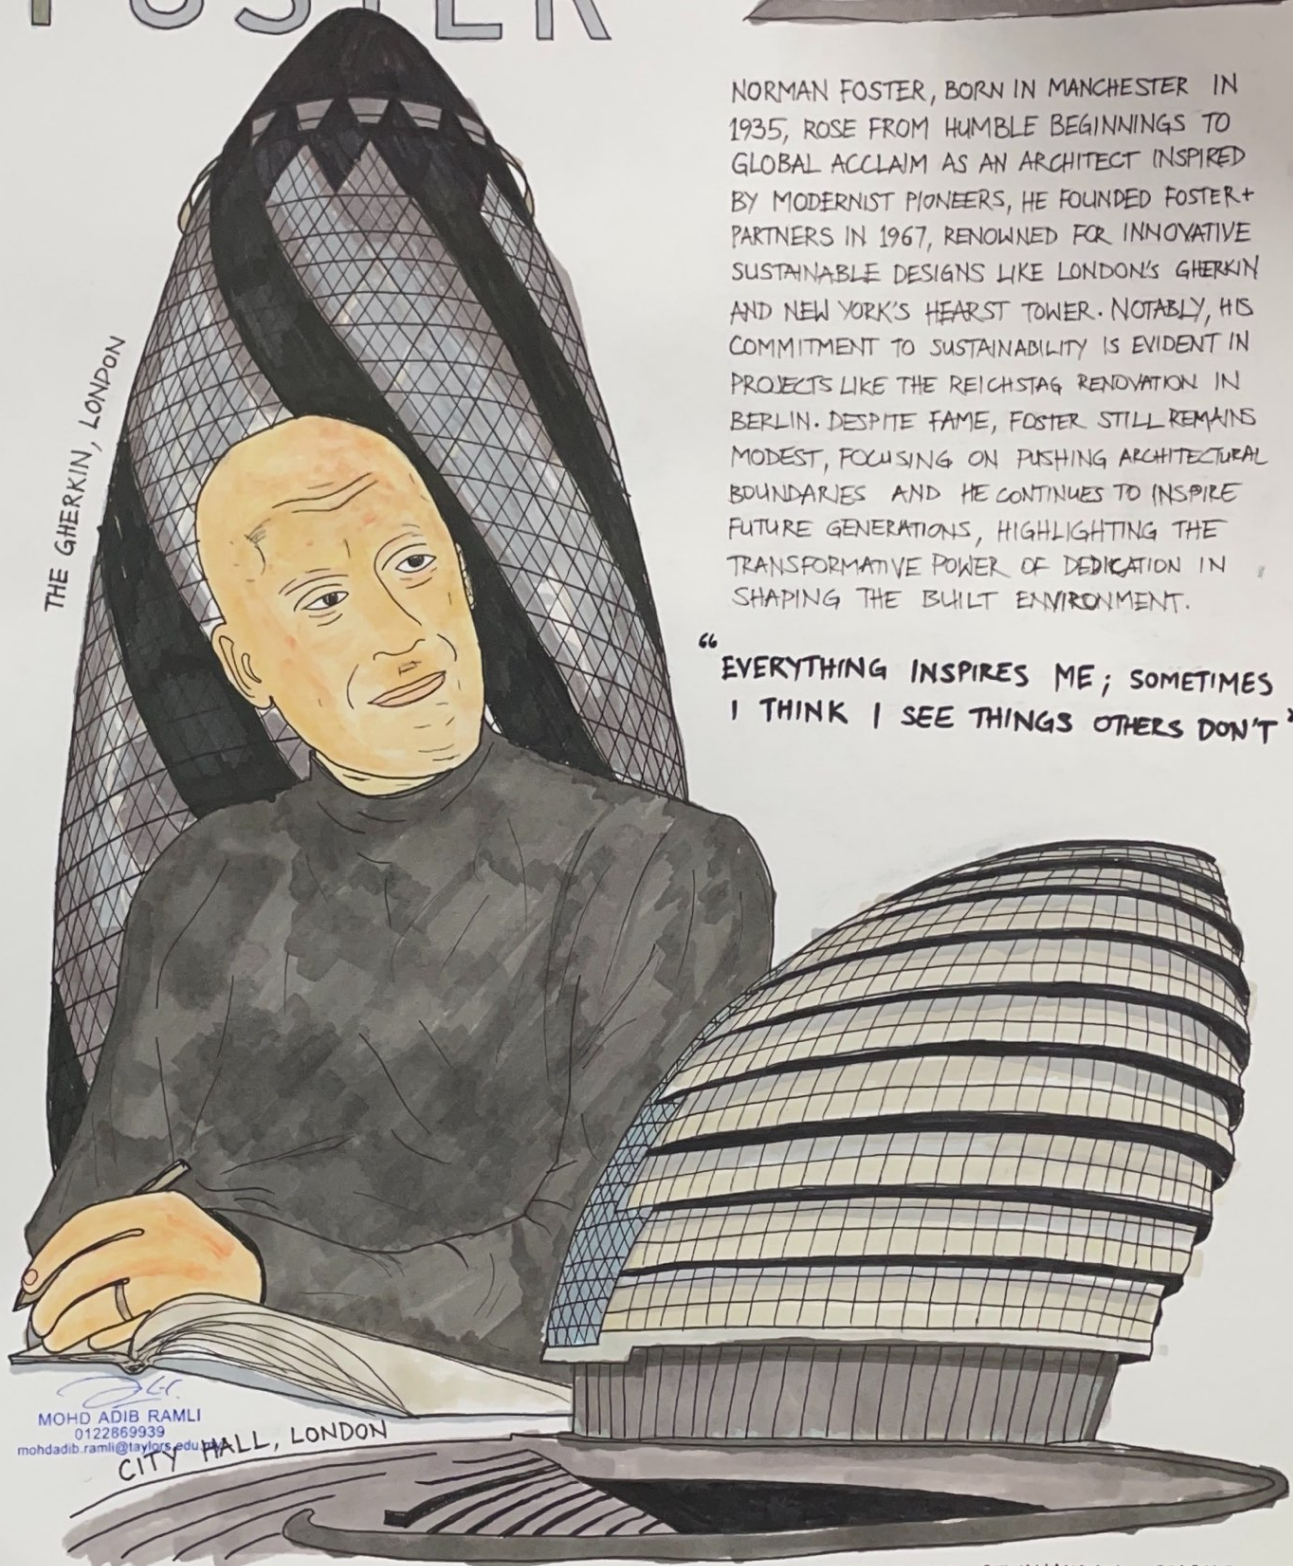 FOSTER
NORMAN FOSTER, BORN IN MANCHESTER IN
1935, ROSE FROM HUMBLE BEGINNINGS TO
GLOBAL ACCLAIM AS AN ARCHITECT INSPIRED
BY MODERNIST PIONEERS, HE FOUNDED FOSTER+
PARTNERS IN 1967, RENOWNED FOR INNOVATIVE
SUSTAINABLE DESIGNS LIKE LONDON'S GHERKIN
AND NEW YORK'S HEARST TOWER. NOTABLY, HIS
COMMITMENT TO SUSTAINABILITY IS EVIDENT IN
PROJECTS LIKE THE REICHSTAG RENOVATION IN
BERLIN. DESPITE FAME, FOSTER STILL REMAINS
MODEST, FOCUSING ON PUSHING ARCHITECTURAL
BOUNDARIES AND HE CONTINUES TO INSPIRE
FUTURE GENERATIONS, HIGHLIGHTING THE
TRANSFORMATIVE POWER OF DEDICATION IN
SHAPING THE BUILT ENVIRONMENT.
"EVERYTHING INSPIRES ME; SOMETIMES
I THINK I SEE THINGS OTHERS DON'T"
THE GHERKIN, LONDON
MOHD ADIB RAMLI
0122869939
mohdadib.ramli@taylors.edu
CITY HALL, LONDON